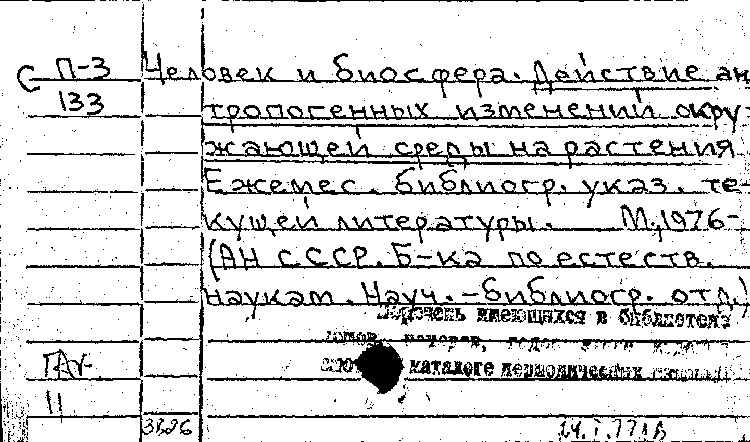 С П-3 Человек и биосфера. Действие ан
133 тропогенных изменений окру-
жающей среды на растения
Ежемес. библиогр. указ. те-
кущей литературы. М., 1976-
(АН СССР. Б-ка по естеств.
наукам. Науч.-библиогр. отд.)
Перечень имеющихся в библиотеке
томов, номеров,
каталоге периодических
11